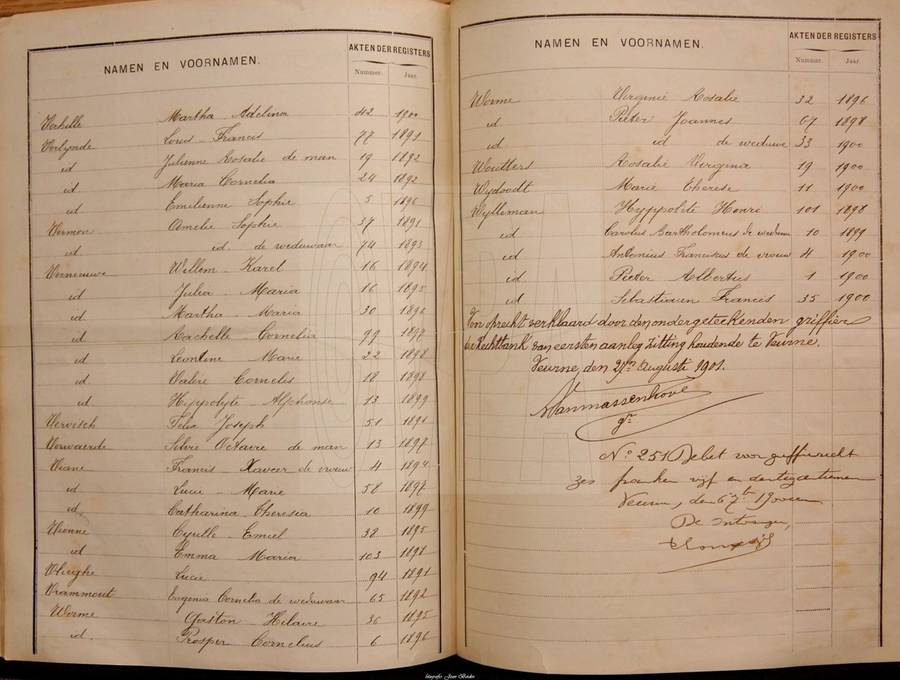 NAMEN EN VOORNAMEN.
AKTEN DER REGISTERS
Nummer. Jaar.
Verhille Martha Adelina 42 1900
Verlynde Louis Francis 78 1891
id Julienne Rosalie de man 19 1892
id Maria Cornelia 24 1892
id Emilienne Sophie 5 1896
Vermon Amelie Sophie 37 1891
id id de weduwaar 74 1893
Vernieuwe Willem Karel 16 1894
id Julia Maria 16 1895
id Martha Maria 30 1896
id Rachelle Cornelia 99 1897
id Leontine Marie 22 1898
id Valère Cornelis 18 1898
id Hyppolyte Alphonse 13 1899
Vervisch Felix Joseph 51 1891
Verwaerde Silvie Octavie de man 13 1897
Viane Francis Xavier de vrouw 4 1894
id Lucie Marie 58 1897
id Catharina Theresia 10 1899
Vienne Cyrille Emiel 38 1895
id Emma Maria 103 1898
Vlieghe Lucie 94 1891
Vrammout Eugenia Cornelia de weduwaar 65 1892
Worme Gaston Hilaire 36 1895
id. Prosper Cornelius 6 1896
NAMEN EN VOORNAMEN.
AKTEN DER REGISTERS
Nummer. Jaar.
Worme Virginie Rosalie 32 1896
id Pieter Joannes 67 1898
id id de weduwe 33 1900
Woutters Rosalie Virginia 19 1900
Wydoodt Marie Therese 11 1900
Wylleman Hyppolite Henri 101 1898
id Carolus Bartholomeus de weduwe 10 1899
id Antonius Franciscus de vrouw 4 1900
id Pieter Albertus 1 1900
id Sebastiaan Francis 35 1900
Voor oprecht verklaard door den ondergeteekenden griffier
der Rechtbank van eersten aanleg zitting houdende te Veurne.
Veurne, den August 1901.
Vanmassenhove
gr
N° 251 Debet voor griffierecht
zes franken vyf en dertig centiemen
Veurne, den 6 7t 19
De Ontvanger,